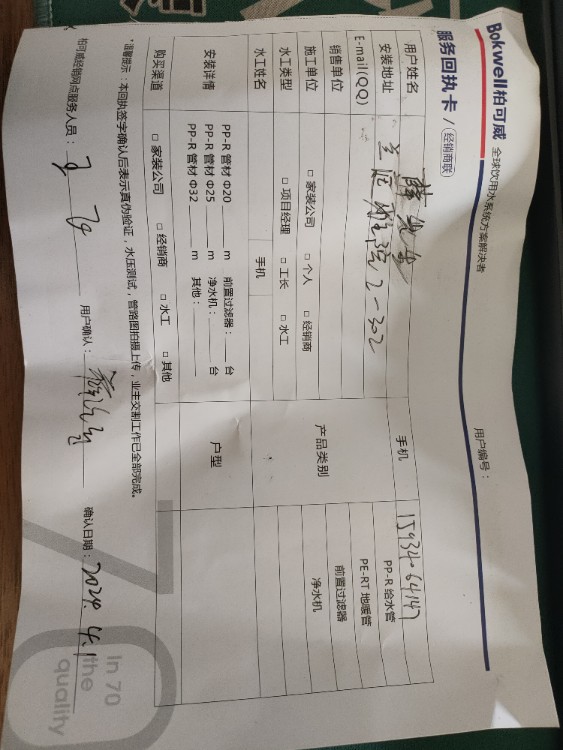 Bokwell柏可威 全球饮用水系统方案解决者
服务回执卡 / 经销商联
用户编号：
用户姓名
手机 15934·64147
安装地址 2-302
E-mail(QQ)
销售单位
施工单位 □ 家装公司 □ 个人 □ 经销商
水工类型 □ 项目经理 □ 工长 □ 水工
水工姓名 手机
产品类别
PP-R 给水管
PE-RT 地暖管
前置过滤器
净水机
安装详情
PP-R 管材 Φ20 m 前置过滤器： 台
PP-R 管材 Φ25 m 净水机： 台
PP-R 管材 Φ32 m 其他：
户型
购买渠道 □ 家装公司 □ 经销商 □ 水工 □ 其他
*温馨提示：本回执签字确认后表示真伪验证，水压测试，管路图拍摄上传，业主交割工作已全部完成。
柏可威经销网点服务人员： 用户确认： 确认日期：2024.4.1
70
In 70
the
quality